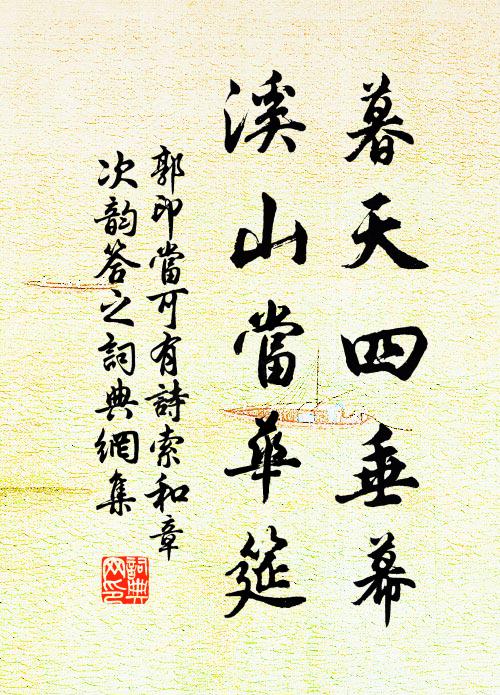 暮天四垂幕
溪山當華筵
郭印當可有詩索和章
次韵答之詞典網集
詞典
网印